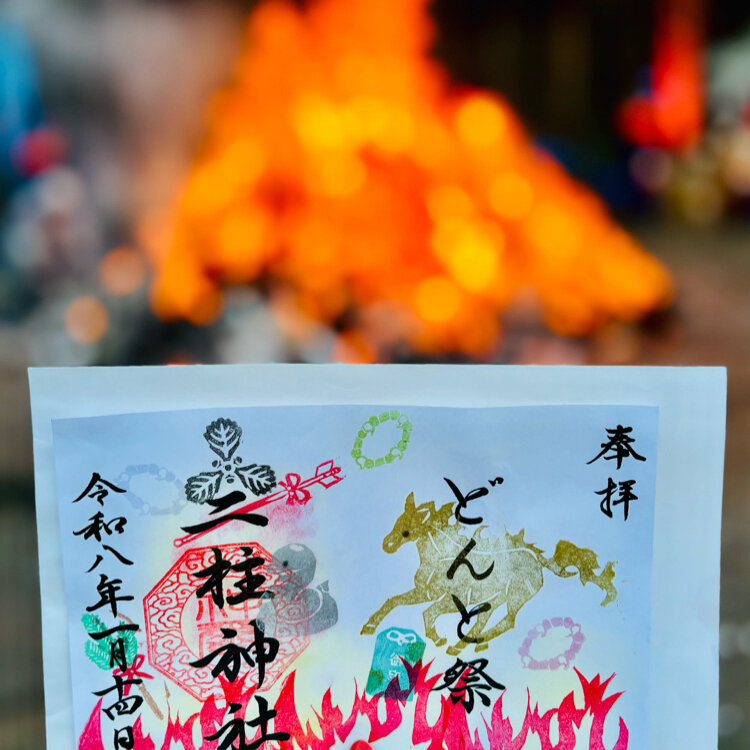 奉拝
どんと祭
二柱神社
令和八年一月十四日